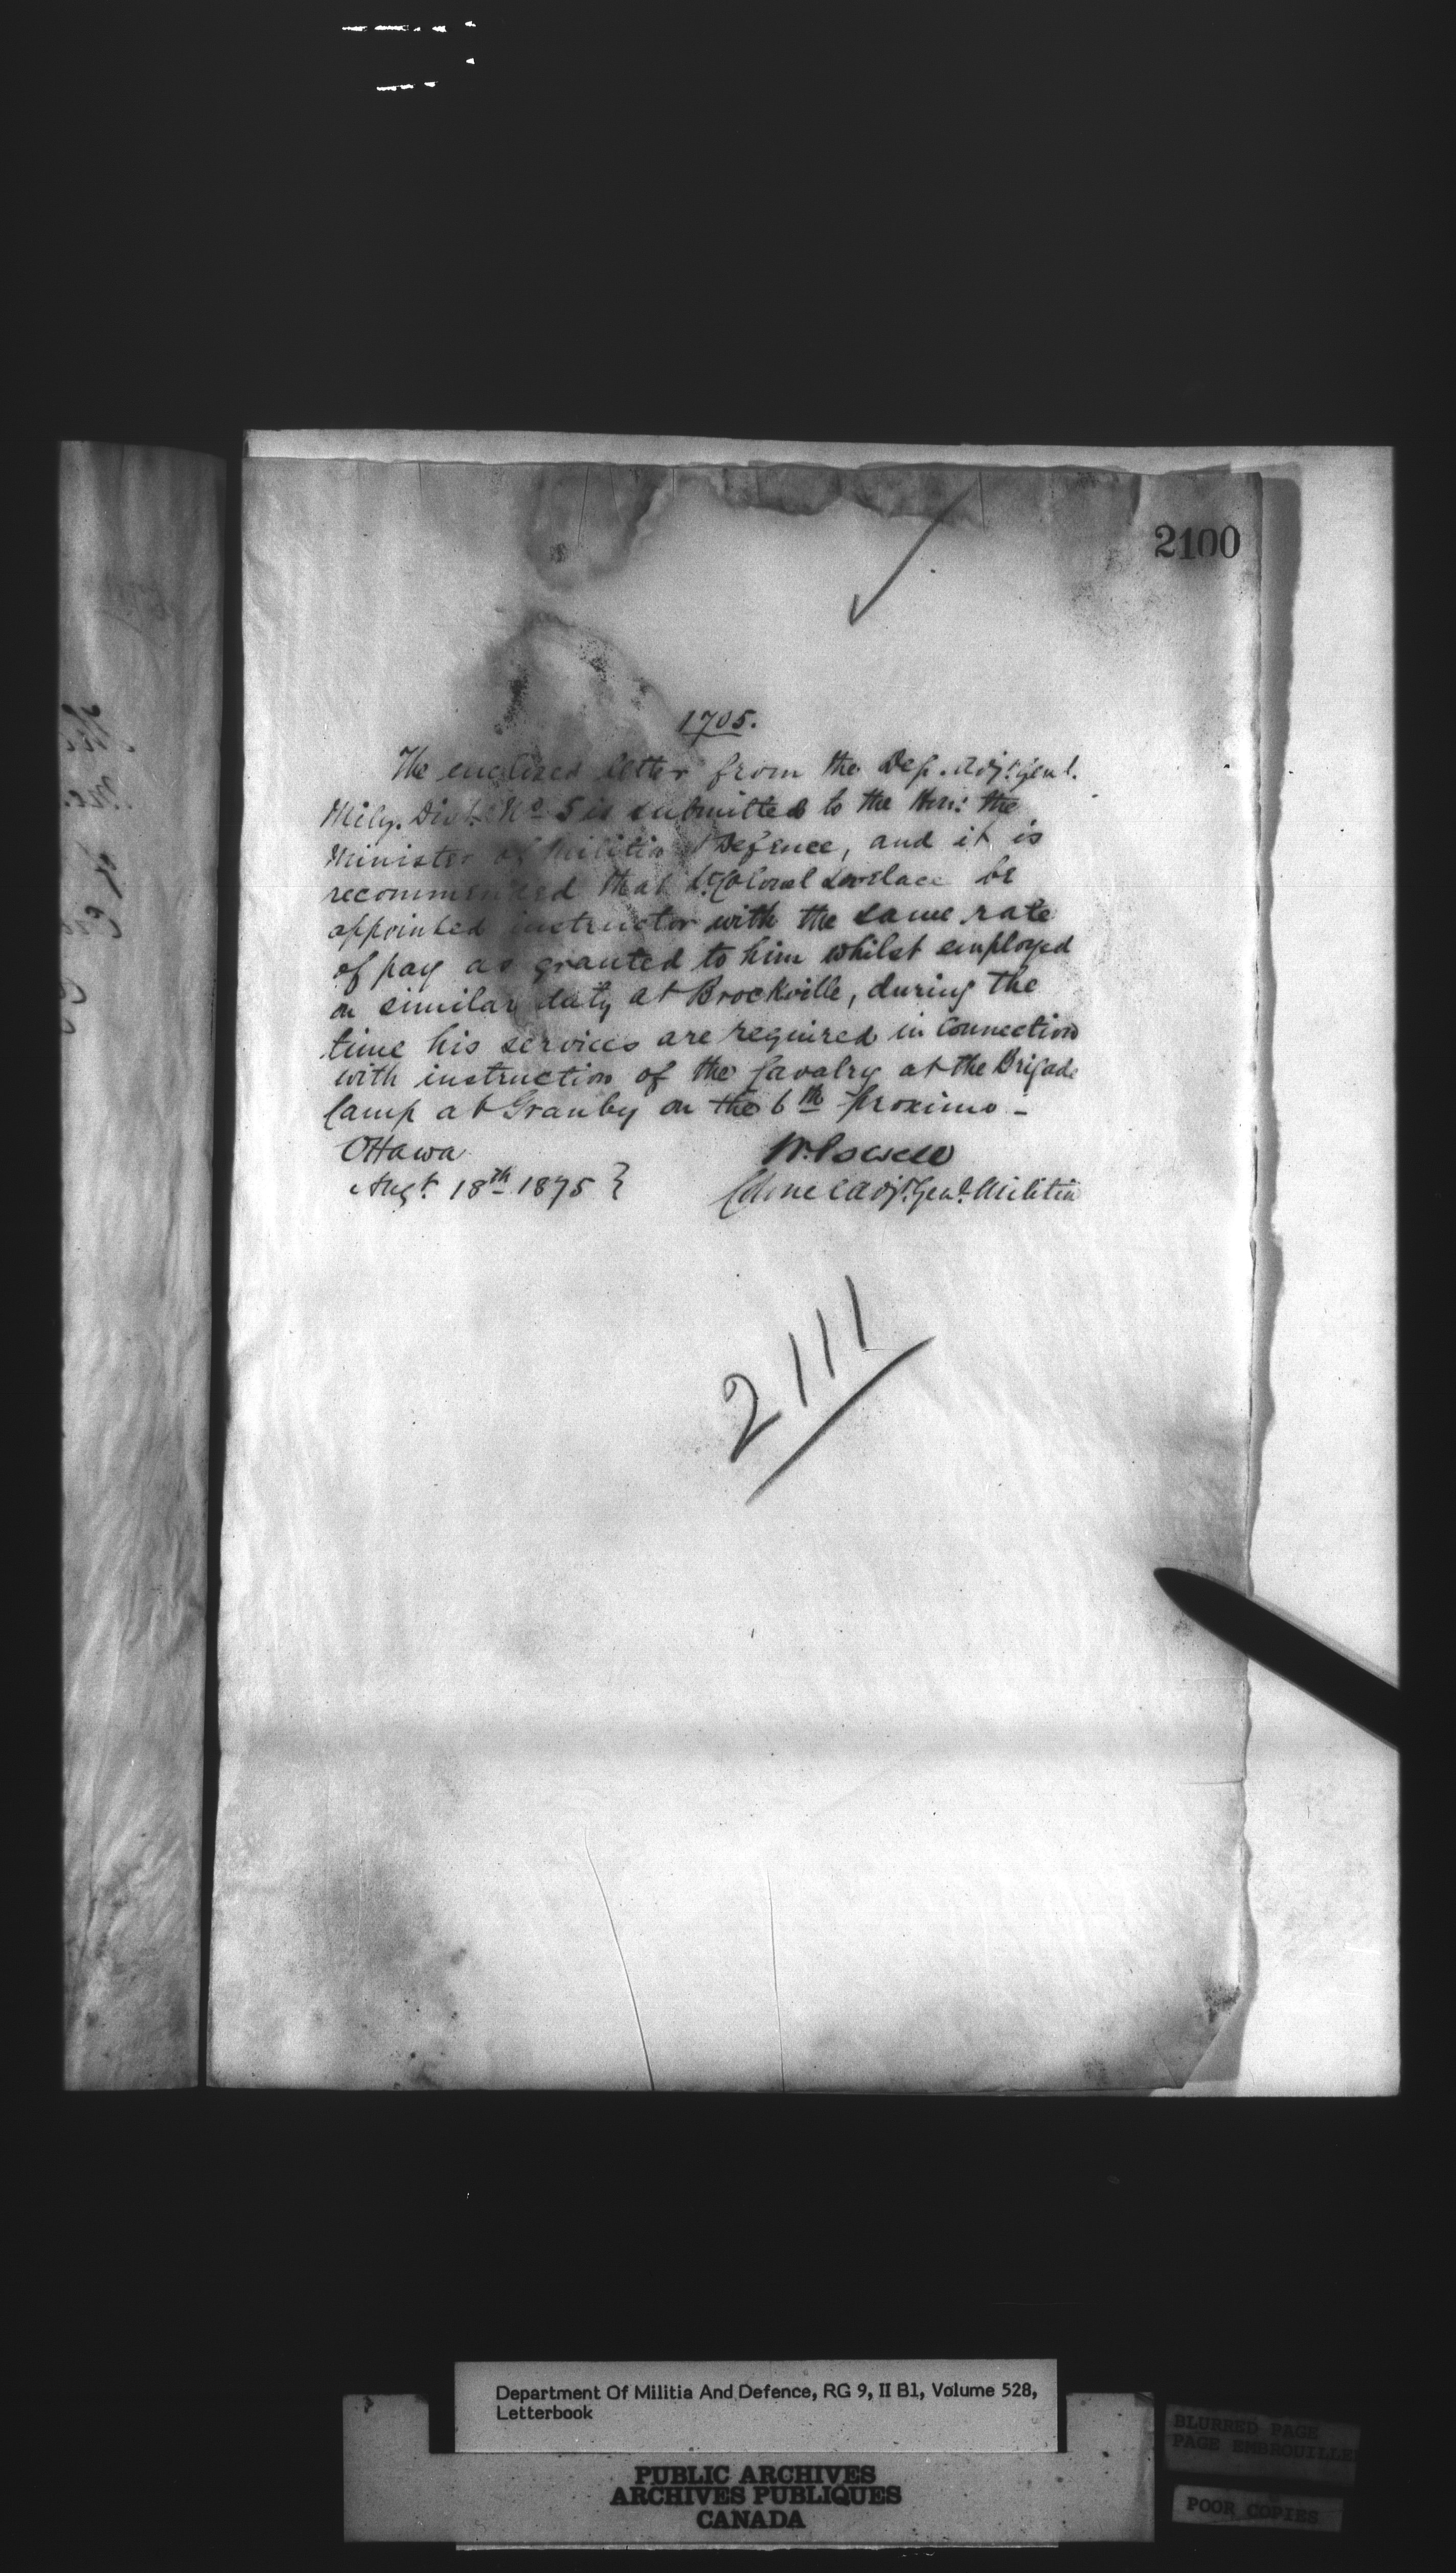 2100
1705.
The enclosed letter from the Dep. Adjt. Genl.
Mily. Dist. No 5 is submitted to the Hon: the
Minister of Militia & Defence, and it is
recommended that Lt. Colonel Lovelace be
appointed instructor with the same rate
of pay as granted to him whilst employed
on similar duty at Brockville, during the
time his services are required in connection
with instruction of the Cavalry at the Brigade
Camp at Granby on the 6th proximo -
Ottawa
Augt. 18th 1875 }
W. Powell
Colonel Adjt. Genl. Militia
2111
Department Of Militia And Defence, RG 9, II B1, Volume 528,
Letterbook
PUBLIC ARCHIVES
ARCHIVES PUBLIQUES
CANADA
BLURRED PAGE
PAGE EMBROUILLE
POOR COPIES